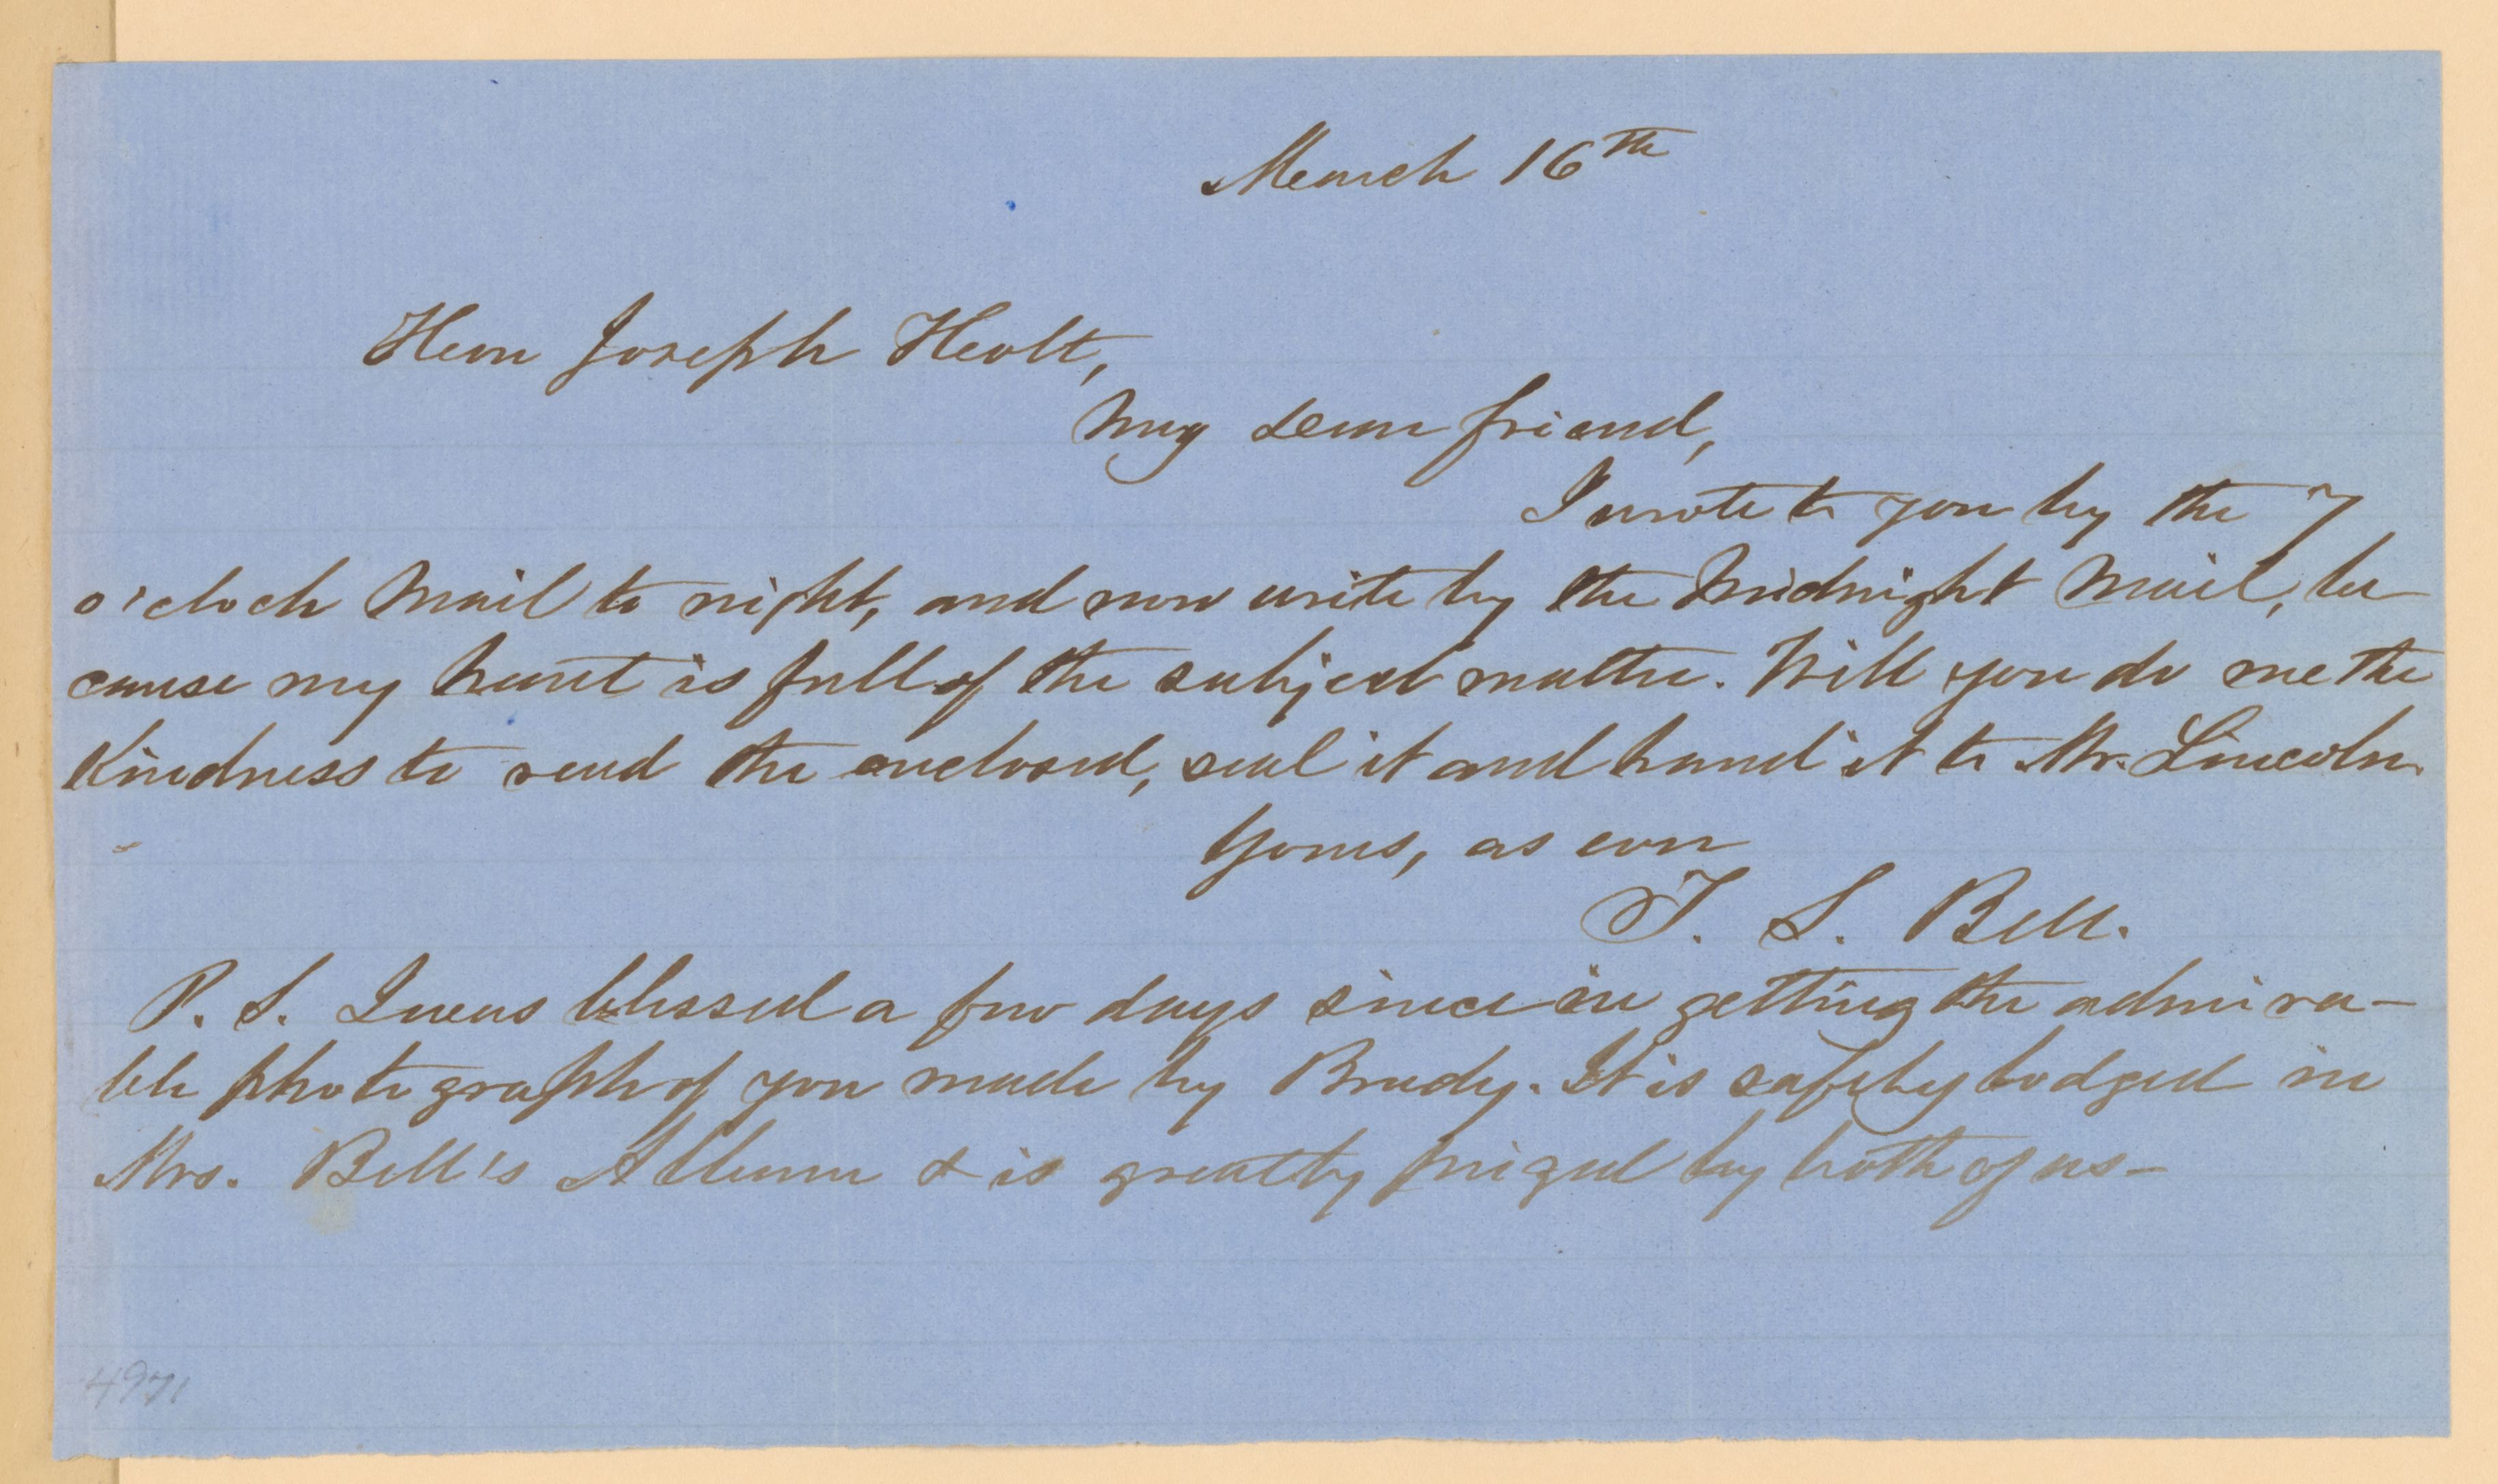 March 16th
Hon Joseph Holt,
My dear friend,
I wrote to you by the 7
o'clock Mail to night, and now write by the Midnight Mail, be
cause my heart is full of the subject matter. Will you do me the
kindness to read the enclosed, seal it and hand it to Mr. Lincoln.
Yours, as ever
T. S. Bell.
P. S. I was blessed a few days since in getting the admira-
ble photograph of you made by Brady. It is safely lodged in
Mrs. Bell's Album & is greatly prized by both of us-
4971